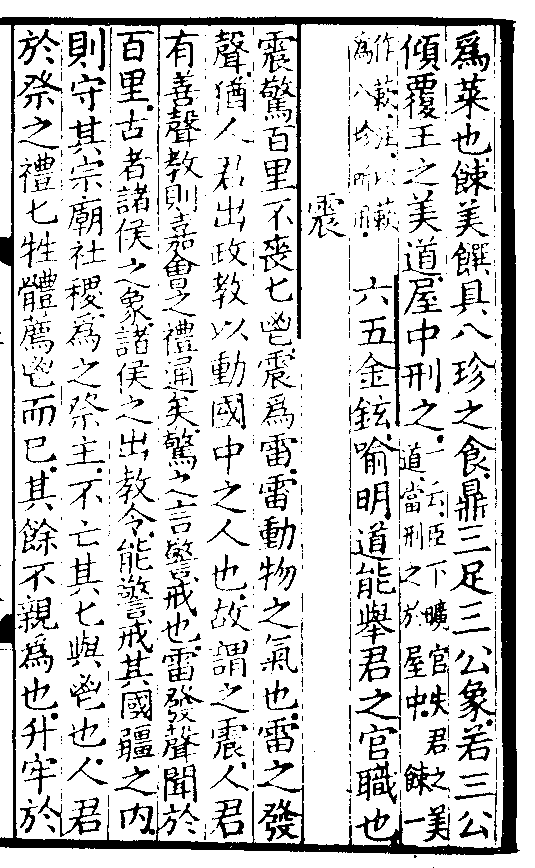 爲菜也餗美饌具八珍之食鼎三足三公象若三公
傾覆王之美道屋中刑之一云臣下曠官失君之美
道當刑之於屋中餗一
作蔌注以蔌
爲八珍所用
六五金鉉喻明道能舉君之官職也
震
震驚百里不喪匕鬯震爲雷雷動物之氣也雷之發
聲猶人君出政教以動國中之人也故謂之震人君
有善聲教則嘉會之禮通矣驚之言警戒也雷發聲聞於
百里古者諸侯之象諸侯之出教令能警戒其國疆之內
則守其宗廟社稷爲之祭主不亡其匕與鬯也人君
於祭之禮匕牲體薦鬯而已其餘不親爲也升牢於